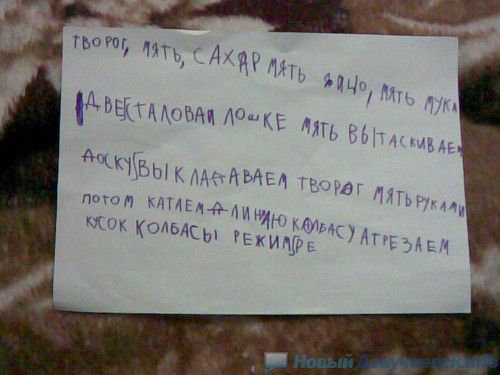 ТВОРОГ, МЯТЬ, САХАР МЯТЬ ЯЙЦО, МЯТЬ МУКА
ДВЕ СТАЛОВАИ ЛОШКЕ МЯТЬ ВЫТАСКИВАЕМ
ДОСКУ ВЫКЛАДАВАЕМ ТВОРОГ МЯТЬ РУКАМИ
ПОТОМ КАТАЕМ ДЛИНЯЮ КОЛБАСУ АТРЕЗАЕМ
КУСОК КОЛБАСЫ РЕЖИМ